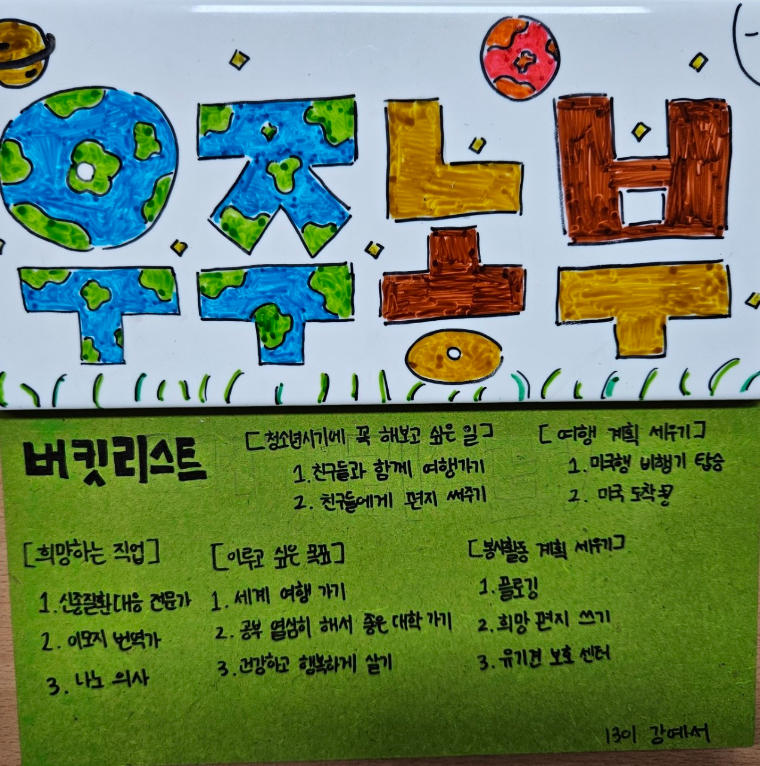 우주농부
우주
버킷리스트
[청소년시기에 꼭 해보고 싶은 일]
1. 친구들과 함께 여행가기
2. 친구들에게 편지 써주기
[여행 계획 세우기]
1. 미국행 비행기 탑승
2. 미국 도착 콩
[희망하는 직업]
1. 신종질환대응 전문가
2. 이모지 번역가
3. 나노 의사
[이루고 싶은 목표]
1. 세계 여행 가기
2. 공부 열심히 해서 좋은 대학 가기
3. 건강하고 행복하게 살기
[봉사활동 계획 세우기]
1. 플로깅
2. 희망 편지 쓰기
3. 유기견 보호 센터
1301 강예서